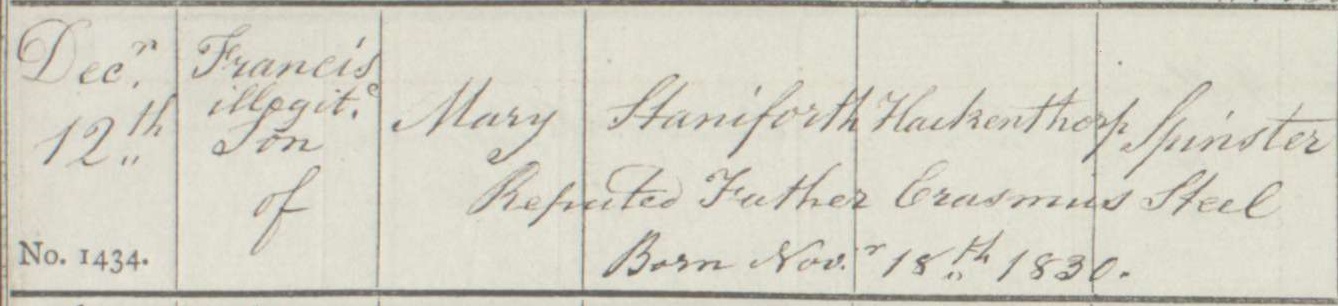 Decr. 12th
Francis
illegite.
Son
of
Mary Staniforth Hackenthorp Spinster
Reputed Father Erasmus Steel
Born Novr. 18th 1830.
No. 1434.